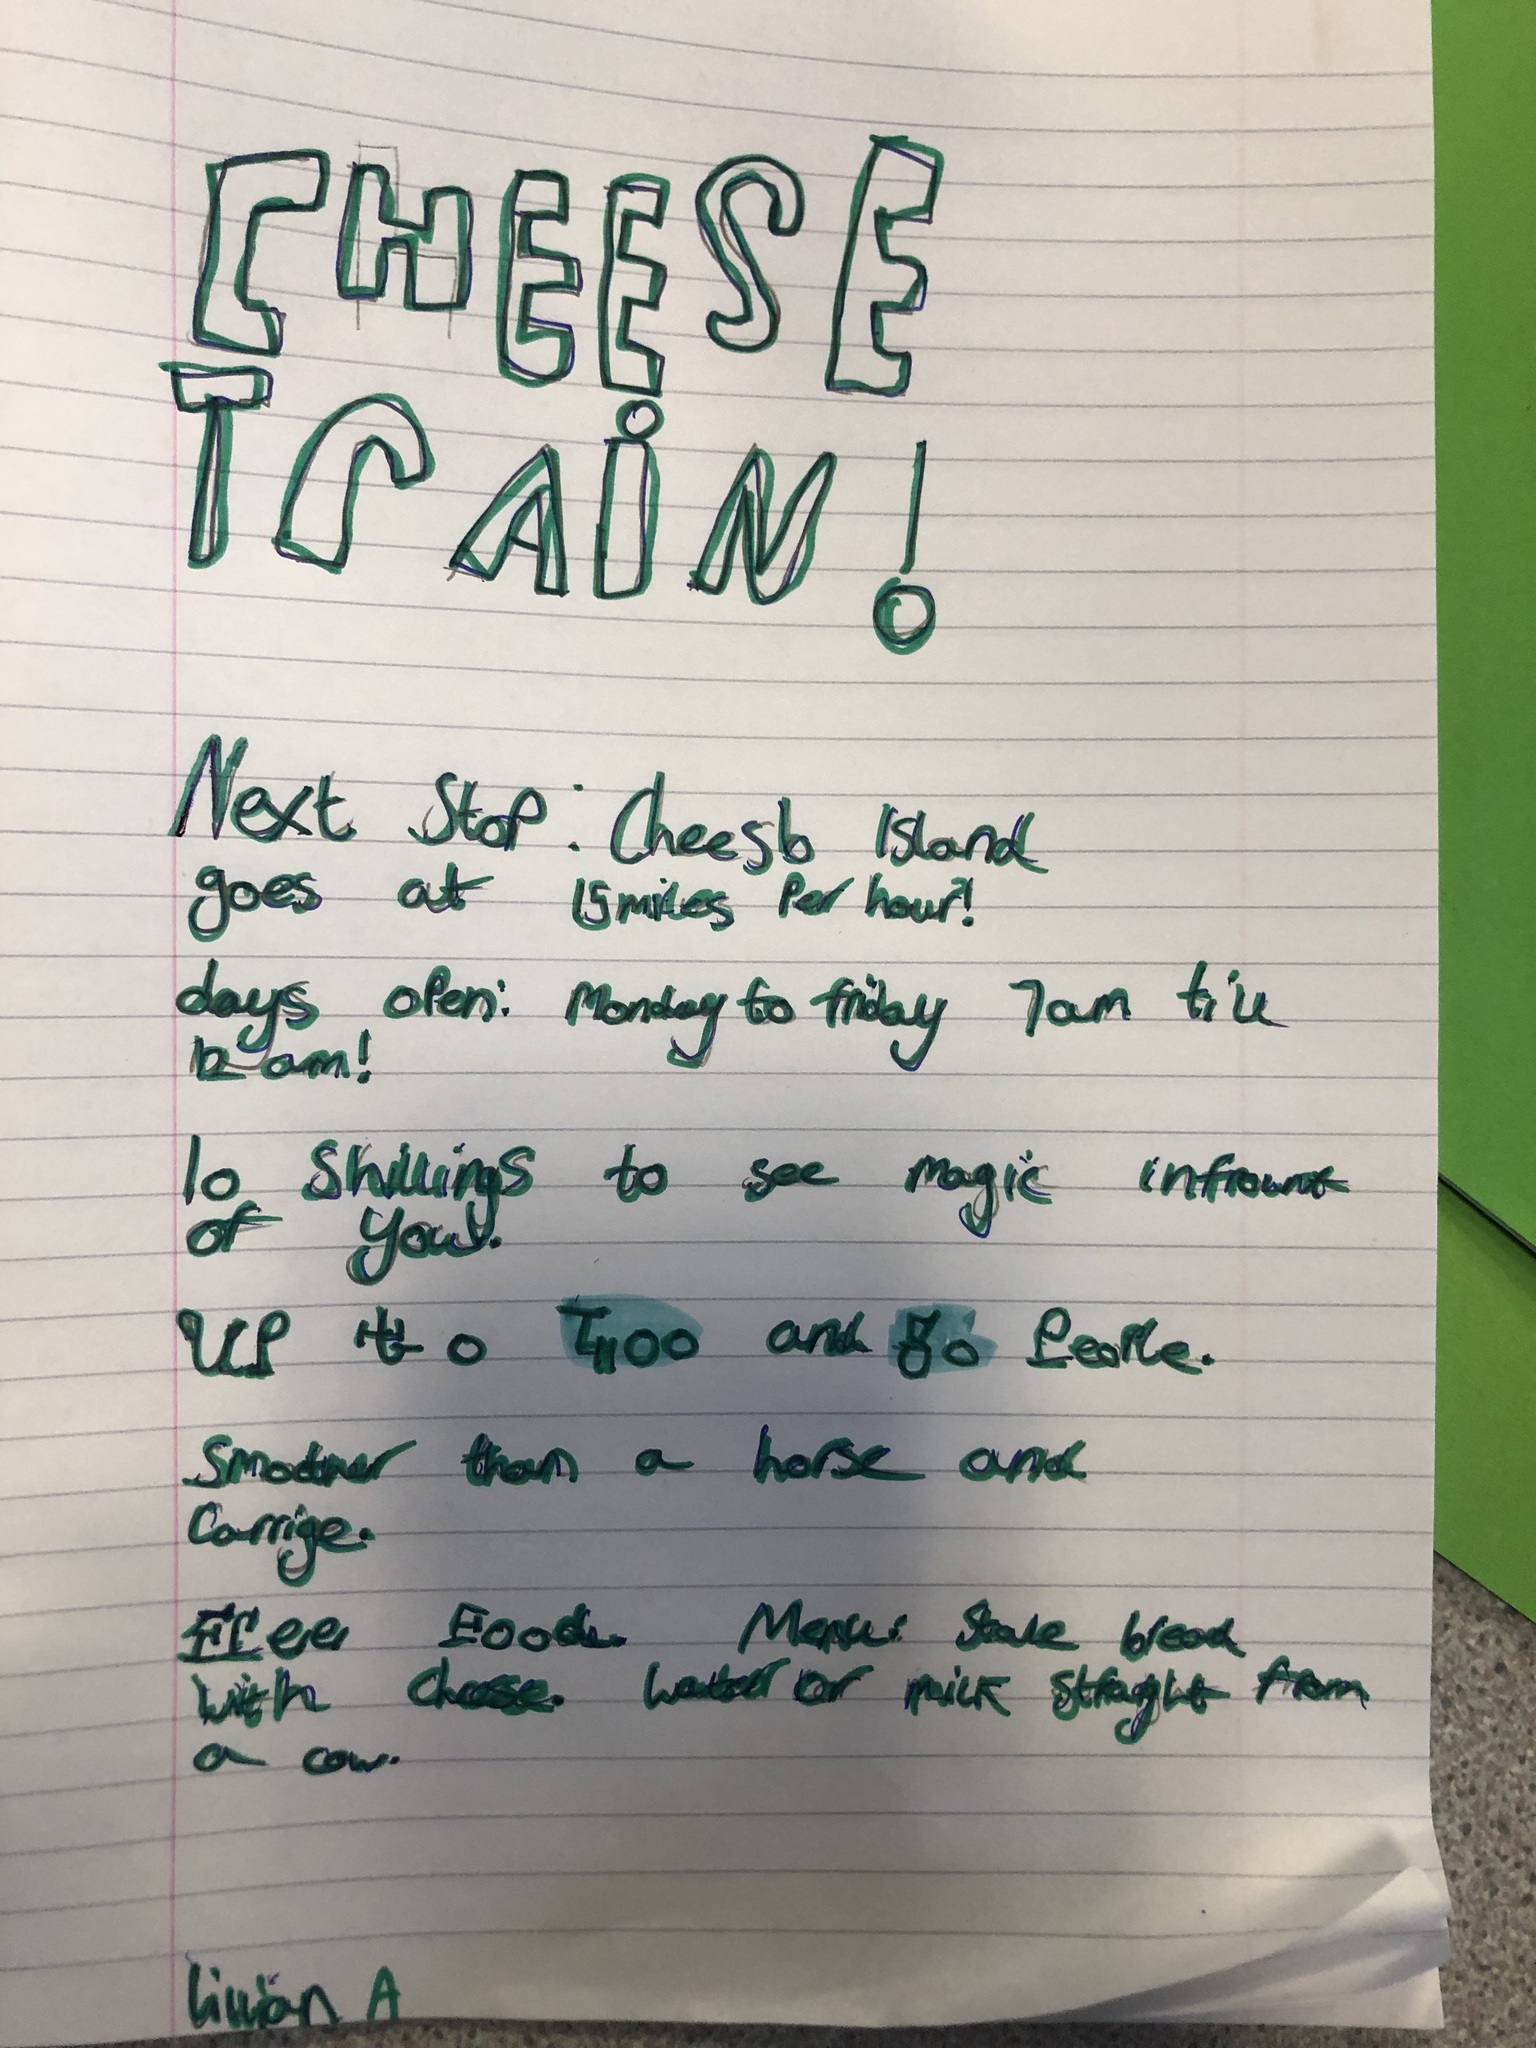 CHEESE
TrAiN!
Next Stop: Cheesb Island
goes at 15 miles Per hour!
days open: Monday to friday 7am till
12 am!
10 Shillings to see magic infrount
of you.
UP to and 50 People.
Smoother than a horse and
Carrige.
Free Food. Menu: Stale bread
with cheese. Water or milk straight from
a cow.
Lillian A